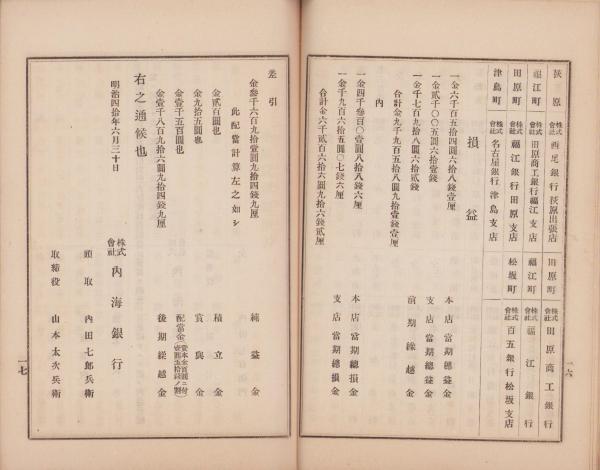 荻原 株式會社 西尾銀行荻原出張店
福江町 株式會社 田原商工銀行福江支店
田原町 株式會社 福江銀行田原支店
津島町 株式會社 名古屋銀行津島支店
田原町 株式會社 田原商工銀行
福江町 株式會社 福江銀行
松坂町 株式會社 百五銀行松坂支店
損益
一金六千百五拾四圓六拾八錢壹厘 本店當期總益金
一金貳千〇〇五圓六拾壹錢 支店當期總益金
一金千七百九拾八圓六拾貳錢 前期繰越金
合計金九千九百五拾八圓九拾壹錢壹厘
內
一金四千參百〇壹圓八拾八錢六厘 本店當期總損金
一金千九百六拾五圓〇七錢六厘 支店當期總損金
合計金六千貳百六拾六圓九拾六錢貳厘
一六
差引
金參千六百九拾壹圓九拾四錢九厘 純益金
此配當計算左之如シ
金貳百圓也 積立金
金九拾五圓也 賞與金
金壹千五百圓也 配當金
金壹千八百九拾六圓九拾四錢九厘 後期繰越金
右之通候也
明治四拾年六月三十日
株式會社 內海銀行
頭取 內田七郎兵衛
取締役 山本太次兵衛
一七